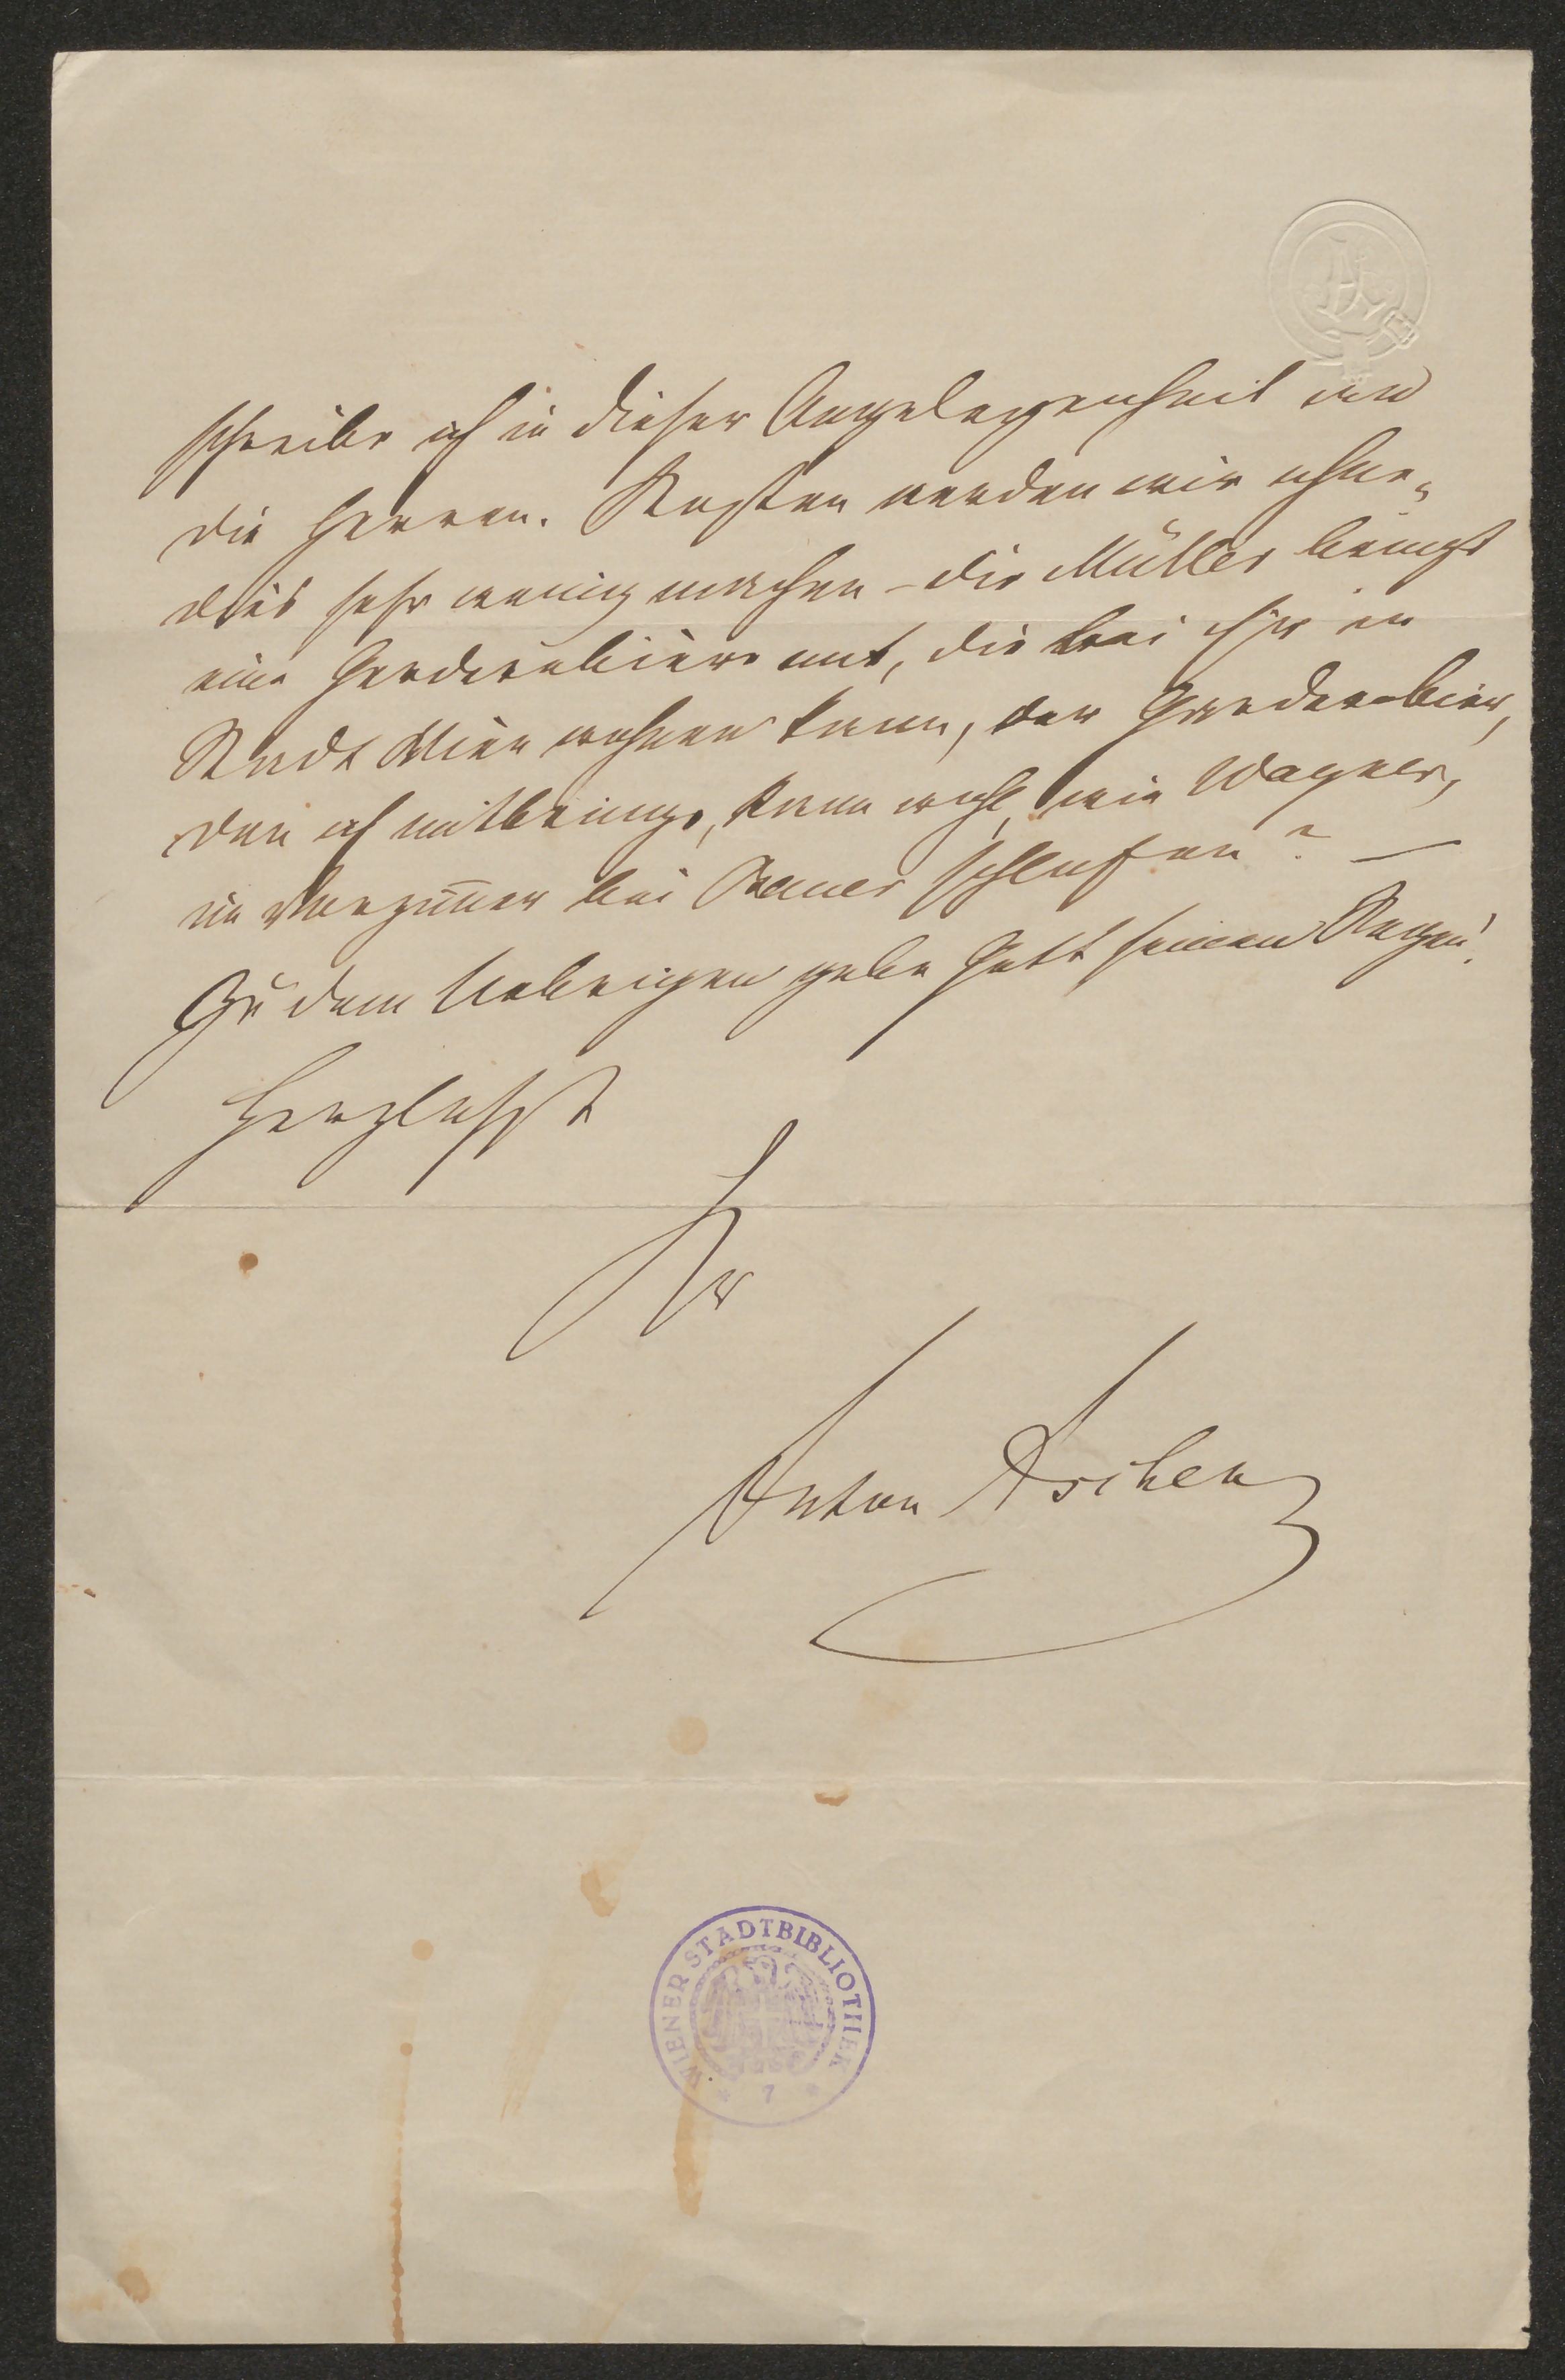 schreibe ich in dieser Angelegenheit an
die Herren. Kosten werden wir ohne-
dies sehr wenig machen – die Müller bringt
eine Garderobiere mit, die bei ihr in
Stadt Wien wohnen kann, der Garderobier,
den ich mitbringe, kann wohl, wie Wagner,
im Vorzimer bei schlafen? —
Zu dem Uebrigen gebe Gott seinen Segen!
Herzlichst
Ihr
Anton Ascher
WIENER STADTBIBLIOTHEK
* 7 *